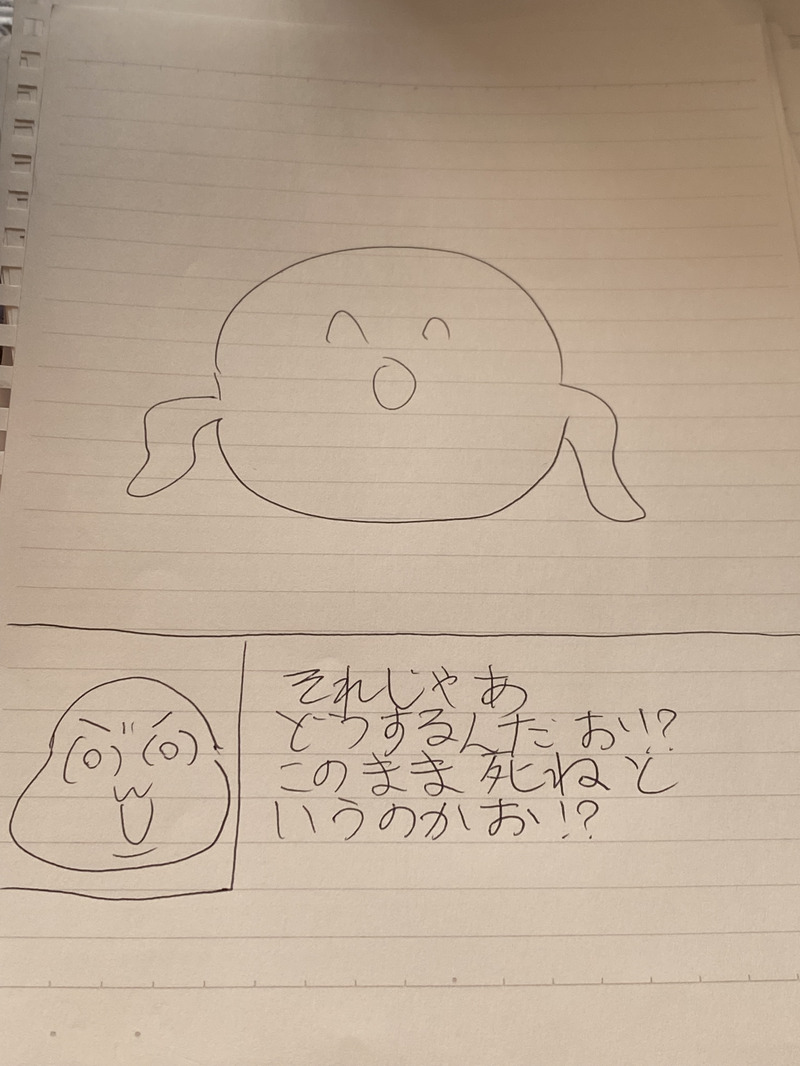 それじゃあ
どうするんだお!?
このまま死ねと
いうのかお!?